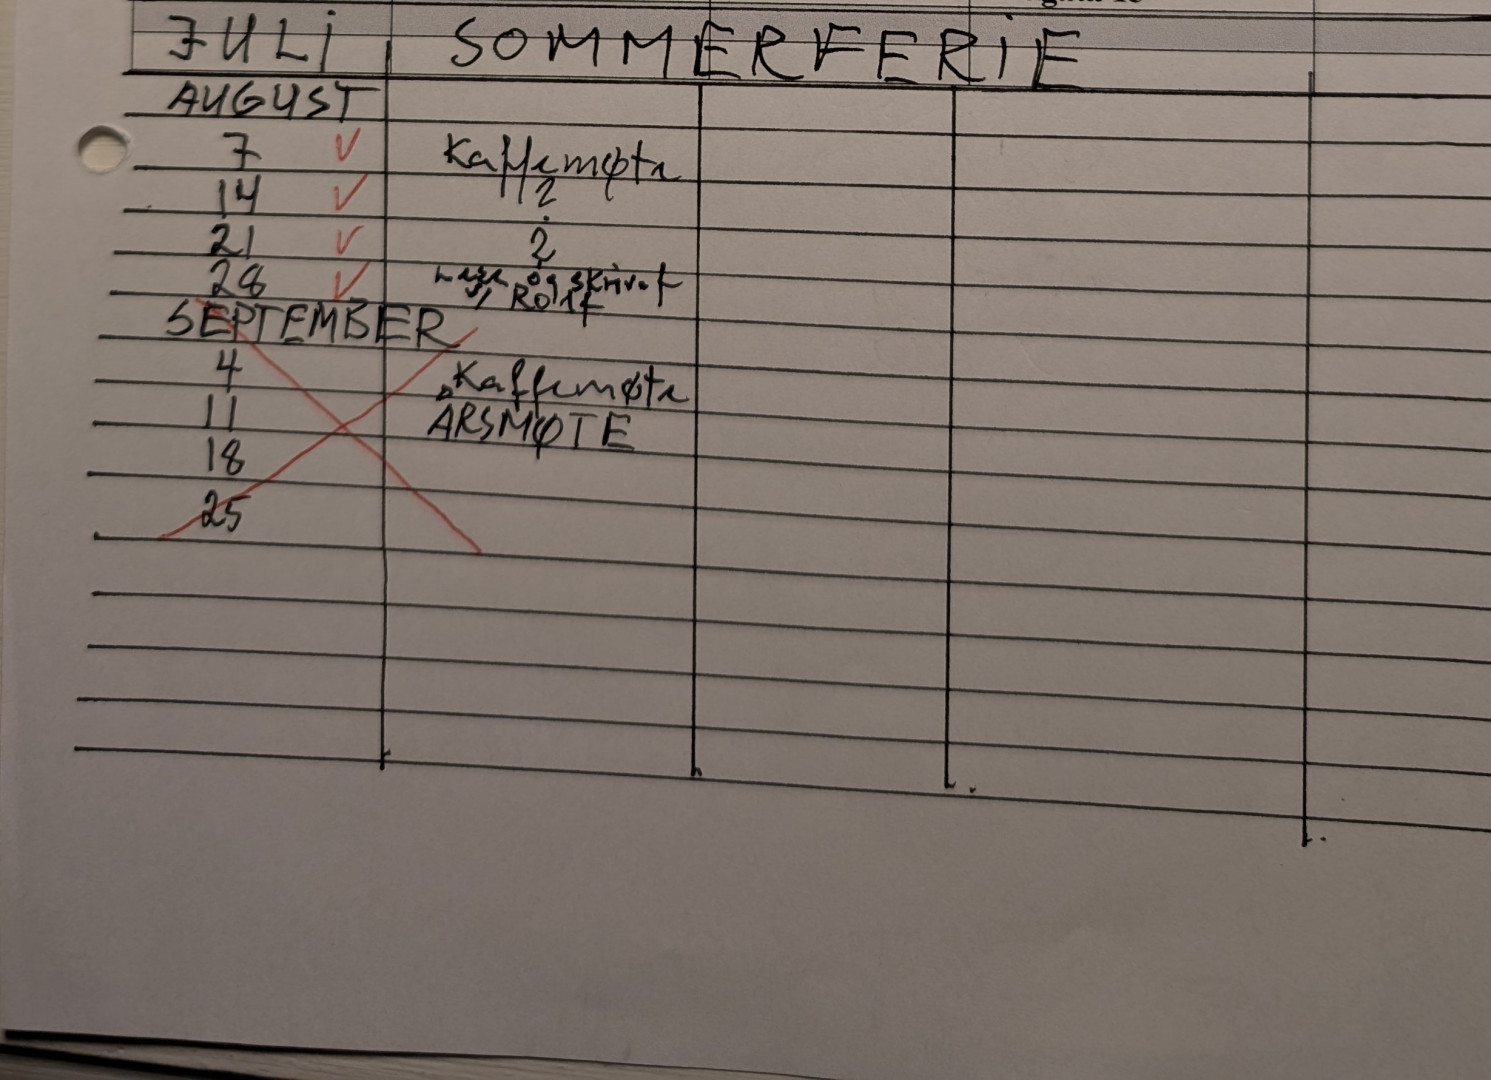 JULI SOMMERFERIE
AUGUST
7 ✓ Kaffemøte
14 ✓ ?
21 ✓ ?
28 ✓ og skrive
Rolf
SEPTEMBER
4 Kaffemøte
11 ÅRSMØTE
18
25